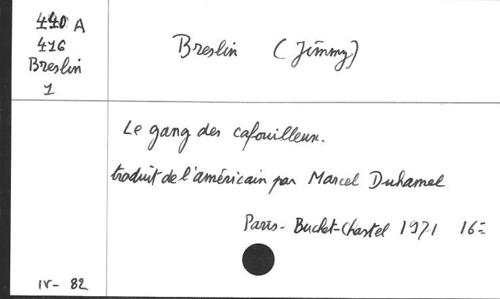 440 A
416
Breslin
1
Breslin (Jimmy)
Le gang des cafouilleux.
traduit de l'américain par Marcel Duhamel
Paris - Buchet-Chastel 1971 16=
IV - 82